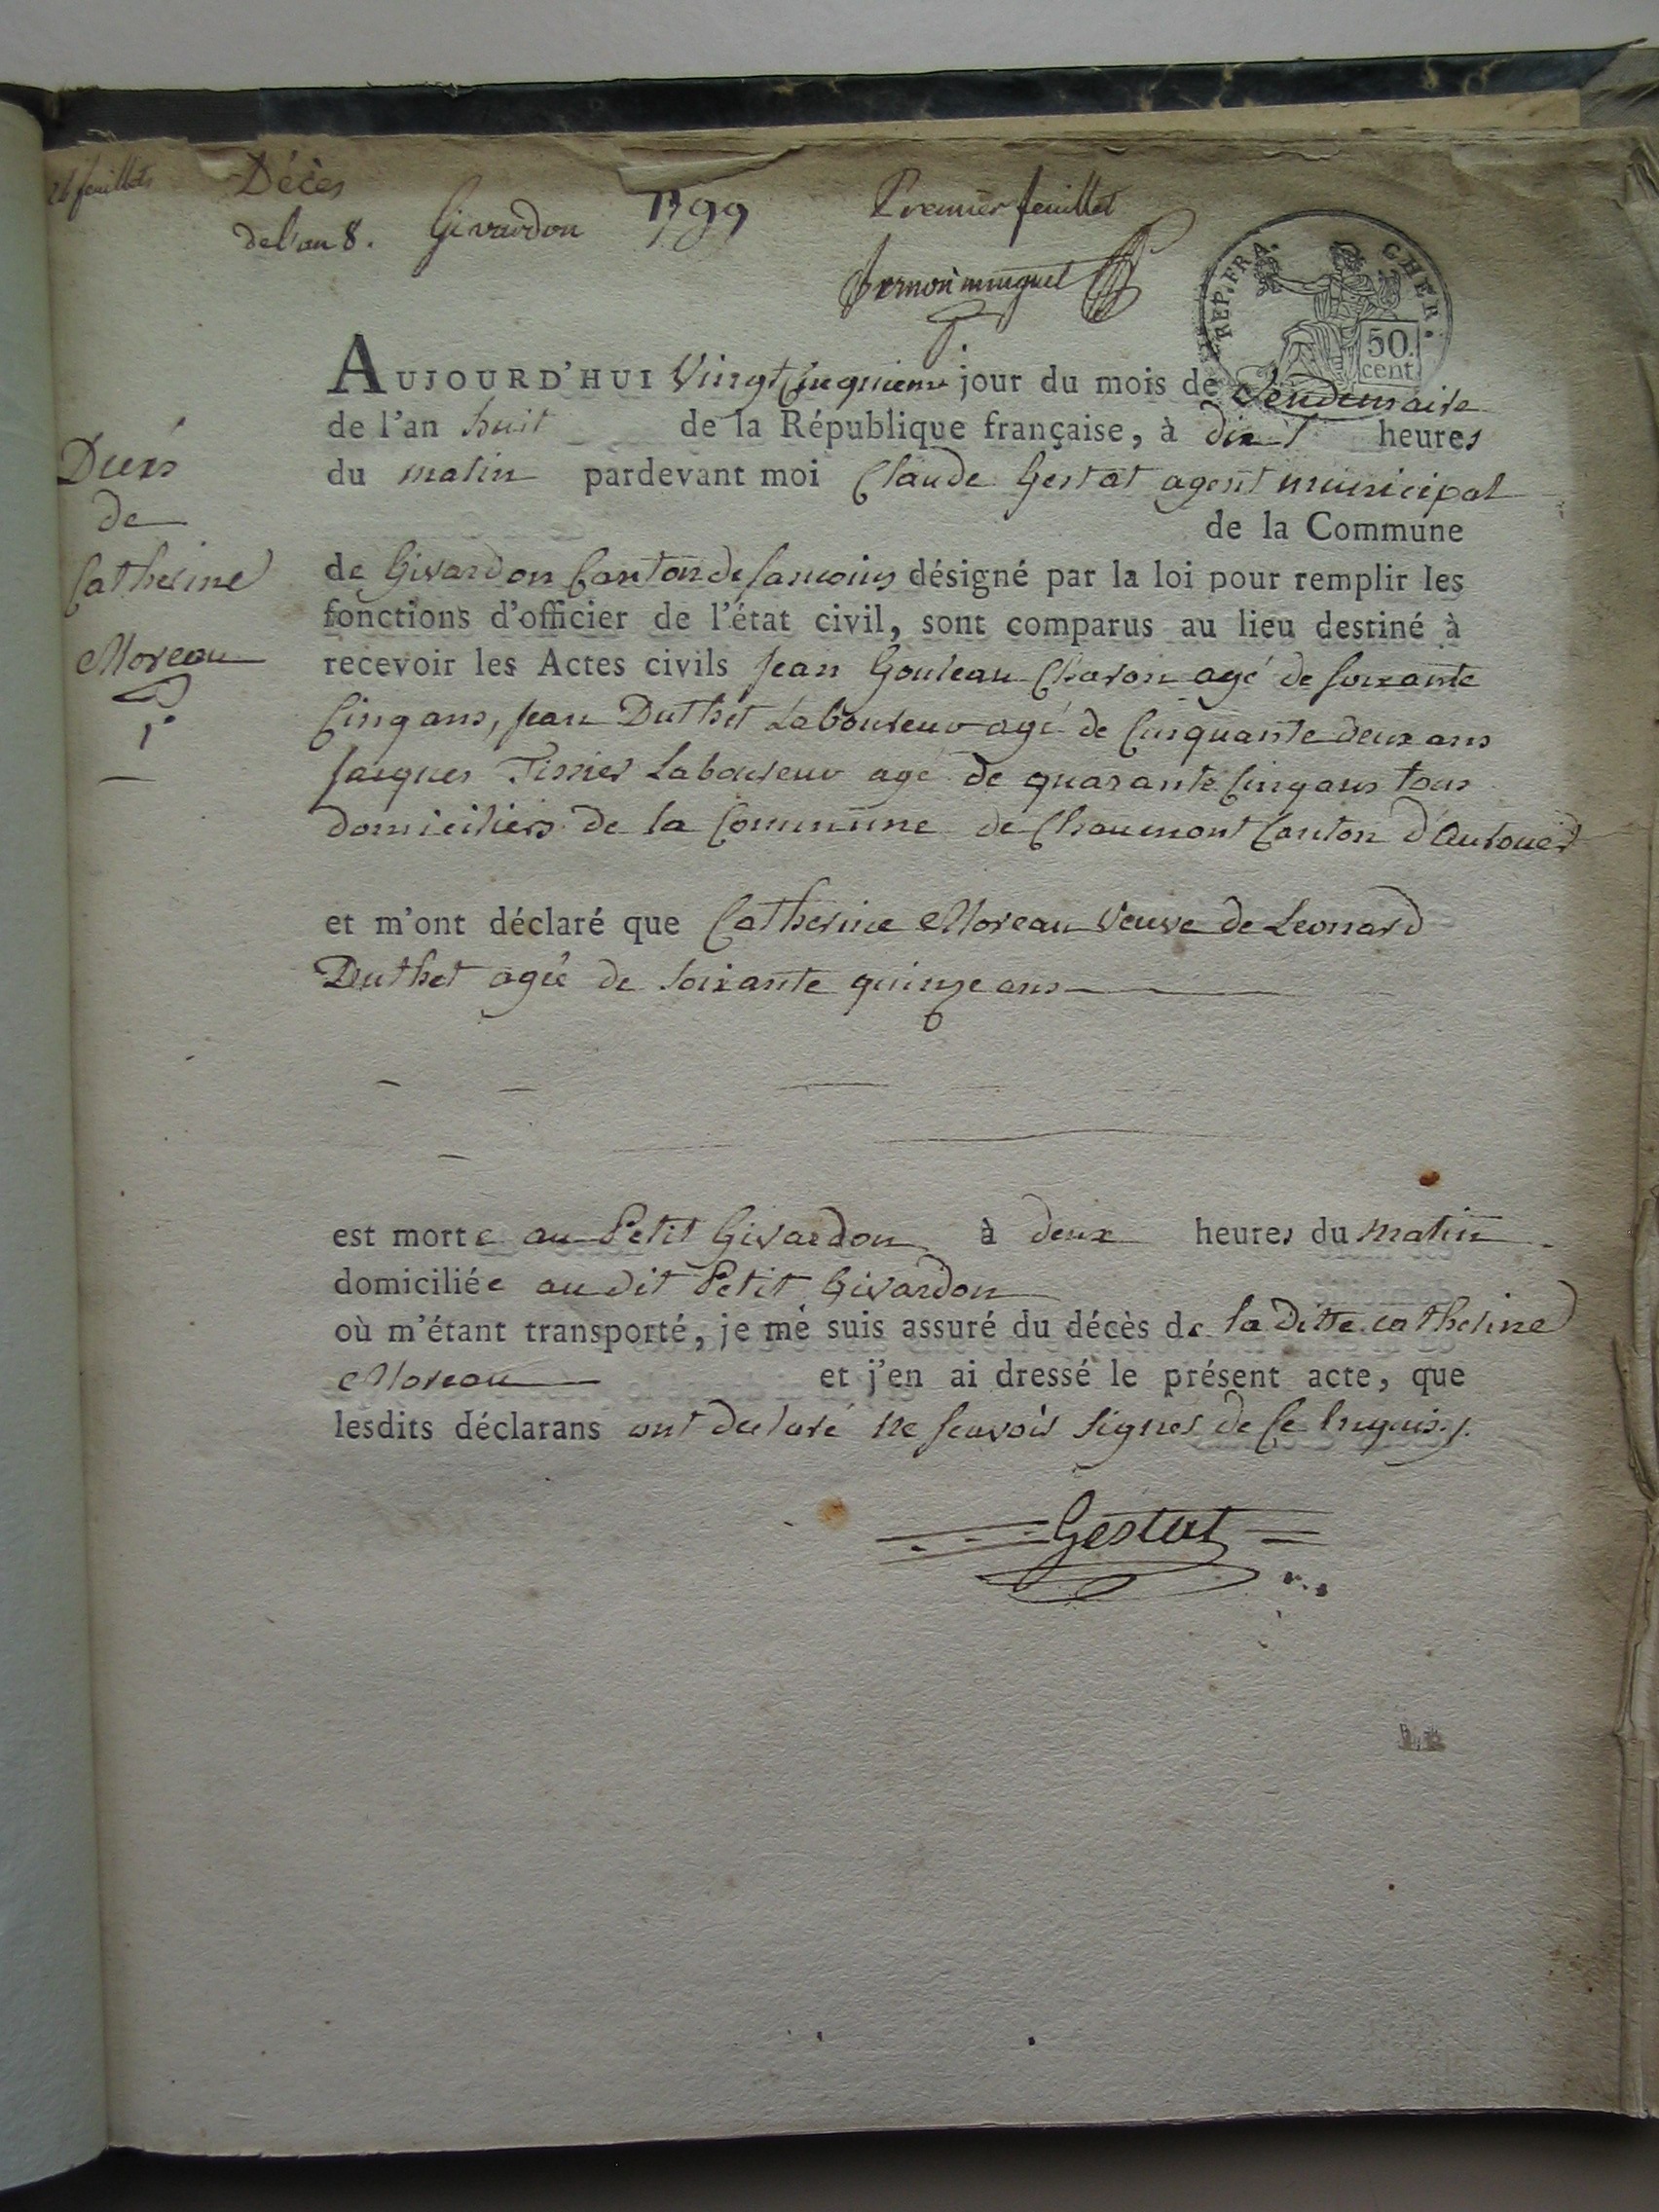 26 feuillets
Décès
de l'an 8. Givardon 1799
Premier feuillet
REP. FRA. CHER.
50.
cent.
AUJOURD'HUI Vingt Cinquieme jour du mois de Vendemaire
de l'an huit de la République française, à dix heures
du matin pardevant moi Claude Gestat agent municipal
de la Commune
de Givardon Canton de Sancoins désigné par la loi pour remplir les
fonctions d'officier de l'état civil, sont comparus au lieu destiné à
recevoir les Actes civils Jean Gouleau Charon agé de soixante
Cinq ans, Jean Duthet Laboureur agé de Cinquante deux ans
Jacques Tissier Laboureur agé de quarante Cinq ans tous
domiciliers de la Commune de Chaumont Canton d
et m'ont déclaré que Catherine Moreau Veuve de Leonard
Duthet agée de soixante quinze ans
est morte au Petit Givardon à deux heures du matin
domiciliée au dit Petit Givardon
où m'étant transporté, je me suis assuré du décès de la ditte catherine
Moreau et j'en ai dressé le présent acte, que
lesdits déclarans ont declaré ne scavoir signer de ce
Gestat
Deces
de
Catherine
Moreau
1º